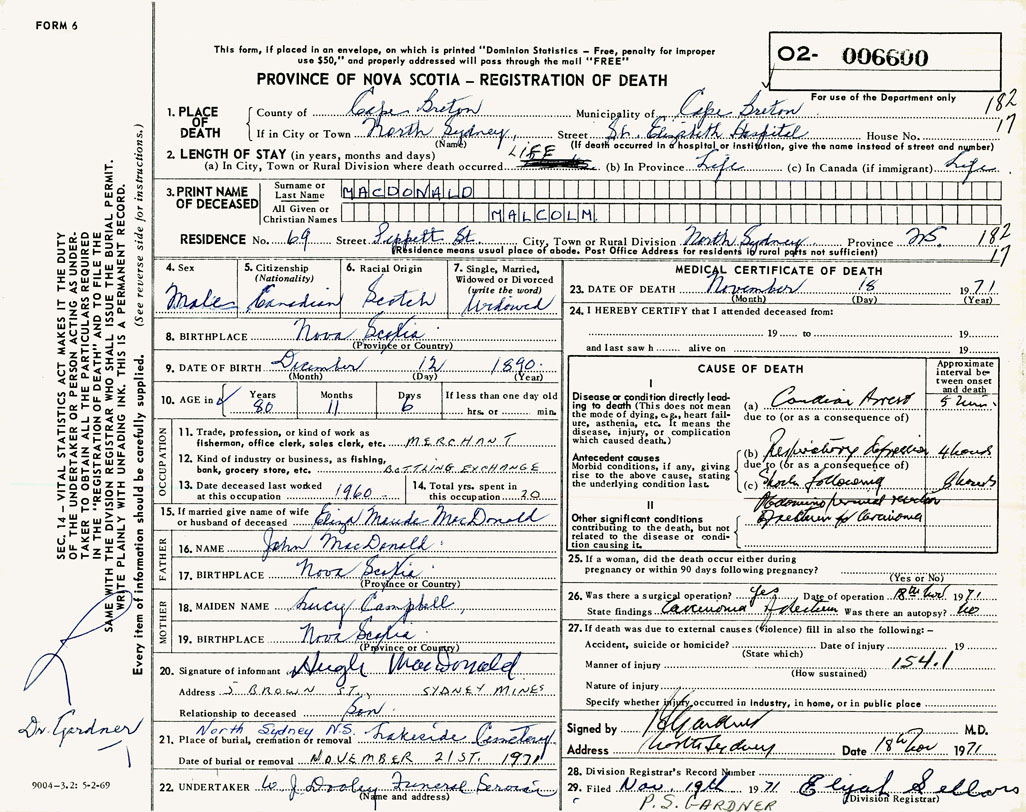 FORM 6
This form, if placed in an envelope, on which is printed "Dominion Statistics – Free, penalty for improper
use $50," and properly addressed will pass through the mail "FREE"
PROVINCE OF NOVA SCOTIA – REGISTRATION OF DEATH
02- 006600
For use of the Department only
182
17
1. PLACE OF DEATH
County of Cape Breton Municipality of Cape Breton
If in City or Town North Sydney, Street St. Elizabeth Hospital House No.
(Name) (If death occurred in a hospital or institution, give the name instead of street and number)
2. LENGTH OF STAY (in years, months and days) LIFE
(a) In City, Town or Rural Division where death occurred (b) In Province Life (c) In Canada (if immigrant) Life
3. PRINT NAME OF DECEASED
Surname or Last Name MACDONALD
All Given or Christian Names MALCOLM
RESIDENCE No. 69 Street Pippett St. City, Town or Rural Division North Sydney Province NS. 182
(Residence means usual place of abode. Post Office Address for residents in rural parts not sufficient) 17
4. Sex Male
5. Citizenship (Nationality) Canadian
6. Racial Origin Scotch
7. Single, Married, Widowed or Divorced (write the word) Widowed
8. BIRTHPLACE Nova Scotia
(Province or Country)
9. DATE OF BIRTH December 12 1890
(Month) (Day) (Year)
10. AGE in Years 80 Months 11 Days 6 If less than one day old hrs. or min.
OCCUPATION
11. Trade, profession, or kind of work as
fisherman, office clerk, sales clerk, etc. MERCHANT
12. Kind of industry or business, as fishing,
bank, grocery store, etc. BOTTLING EXCHANGE
13. Date deceased last worked
at this occupation 1960
14. Total yrs. spent in
this occupation 20
15. If married give name of wife
or husband of deceased Eliza Maude MacDonald
FATHER
16. NAME John MacDonald
17. BIRTHPLACE Nova Scotia
(Province or Country)
MOTHER
18. MAIDEN NAME Lucy Campbell
19. BIRTHPLACE Nova Scotia
(Province or Country)
20. Signature of informant Hugh MacDonald
Address 5 BROWN ST., SYDNEY MINES
Relationship to deceased Son
North Sydney N.S.
21. Place of burial, cremation or removal Lakeside Cemetery
Date of burial or removal NOVEMBER 21ST. 1971
22. UNDERTAKER W. J. Dooley Funeral Service
(Name and address)
MEDICAL CERTIFICATE OF DEATH
23. DATE OF DEATH November 18 1971
(Month) (Day) (Year)
24. I HEREBY CERTIFY that I attended deceased from:
19 to 19
and last saw h alive on 19
CAUSE OF DEATH
Approximate interval between onset and death
I
Disease or condition directly leading to death (This does not mean the mode of dying, e.g., heart failure, asthenia, etc. It means the disease, injury, or complication which caused death.)
(a) Cardiac Arrest 5 min.
due to (or as a consequence of)
Antecedent causes
Morbid conditions, if any, giving rise to the above cause, stating the underlying condition last.
(b) Respiratory depression 4 hours
due to (or as a consequence of)
(c) Shock following 8 hours
Abdomino perineal resection
II
Other significant conditions contributing to the death, but not related to the disease or condition causing it.
of rectum for Carcinoma
25. If a woman, did the death occur either during
pregnancy or within 90 days following pregnancy?
(Yes or No)
26. Was there a surgical operation? Yes Date of operation 18th Nov 1971
State findings Carcinoma of rectum Was there an autopsy? No
27. If death was due to external causes (violence) fill in also the following:–
Accident, suicide or homicide? Date of injury 19
(State which)
Manner of injury 154.1
(How sustained)
Nature of injury
Specify whether injury occurred in industry, in home, or in public place
Signed by Gardner M.D.
Address North Sydney Date 18th Nov 1971
28. Division Registrar's Record Number
29. Filed Nov. 19th 1971 Elijah Sellars
(Division Registrar)
P.S. GARDNER
SEC. 14 – VITAL STATISTICS ACT MAKES IT THE DUTY
OF THE UNDERTAKER OR PERSON ACTING AS UNDER-
TAKER TO OBTAIN ALL THE PARTICULARS REQUIRED
IN THE "REGISTRATION OF DEATH" AND TO FILE THE
SAME WITH THE DIVISION REGISTRAR WHO SHALL ISSUE THE BURIAL PERMIT.
WRITE PLAINLY WITH UNFADING INK. THIS IS A PERMANENT RECORD.
Every item of information should be carefully supplied. (See reverse side for instructions.)
Dr. Gardner
9004-3.2: 5-2-69